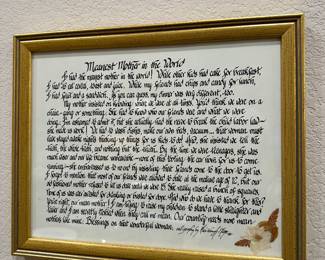 Meanest Mother in the World
I had the meanest mother in the world! While other kids had cake for breakfast,
I had to eat cereal, toast and juice. While my friends had chips and candy for lunch,
I had fruit and a sandwich. As you can guess, my dinner was very different, too.
My mother insisted on knowing where we were at all times. You'd think we were on a
chain-gang or something. She had to know who our friends were and what we were
doing. I'm ashamed to admit it, but she actually had the nerve to break the child labor law—
she made us work! We had to wash dishes, make our own beds, vacuum
lied awake nights thinking up things for us kids to do! And, she insisted we tell the
truth, the whole truth, and nothing but the truth. By the time we were teenagers, she was
much wiser and our life became unbearable
she embarrassed us to no end by insisting that friends come to the door to get us.
I forgot to mention that most of our friends were allowed to date at the mature age of 12, but our
old fashioned mother refused to let us date until we were 15. She really raised a bunch of squares.
None of us was ever arrested for stealing or busted for dope. And who do we have to thank for this?
You're right, our mean mother! I am trying to raise my children to stand a little straighter and
taller and I am secretly tickled when they call me mean. Our country needs more mean
mothers like mine. Blessings on that wonderful woman.